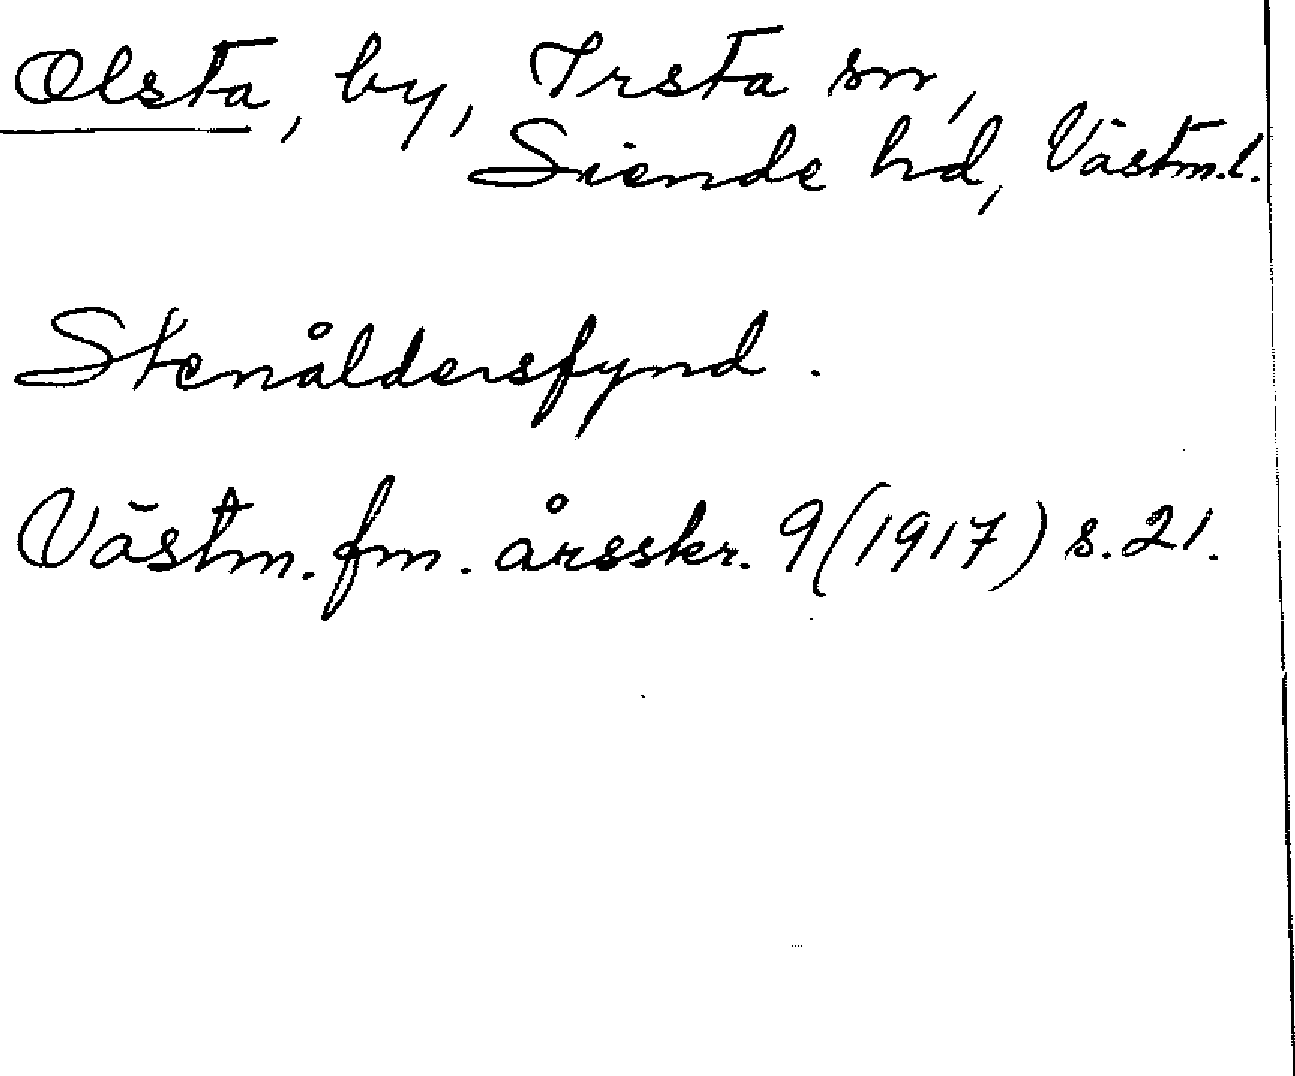 Olsta, by, Irsta sn,
Siende hd, Västm.l.
Stenåldersfynd.
Västm. fm. årsskr. 9 (1917) s. 21.